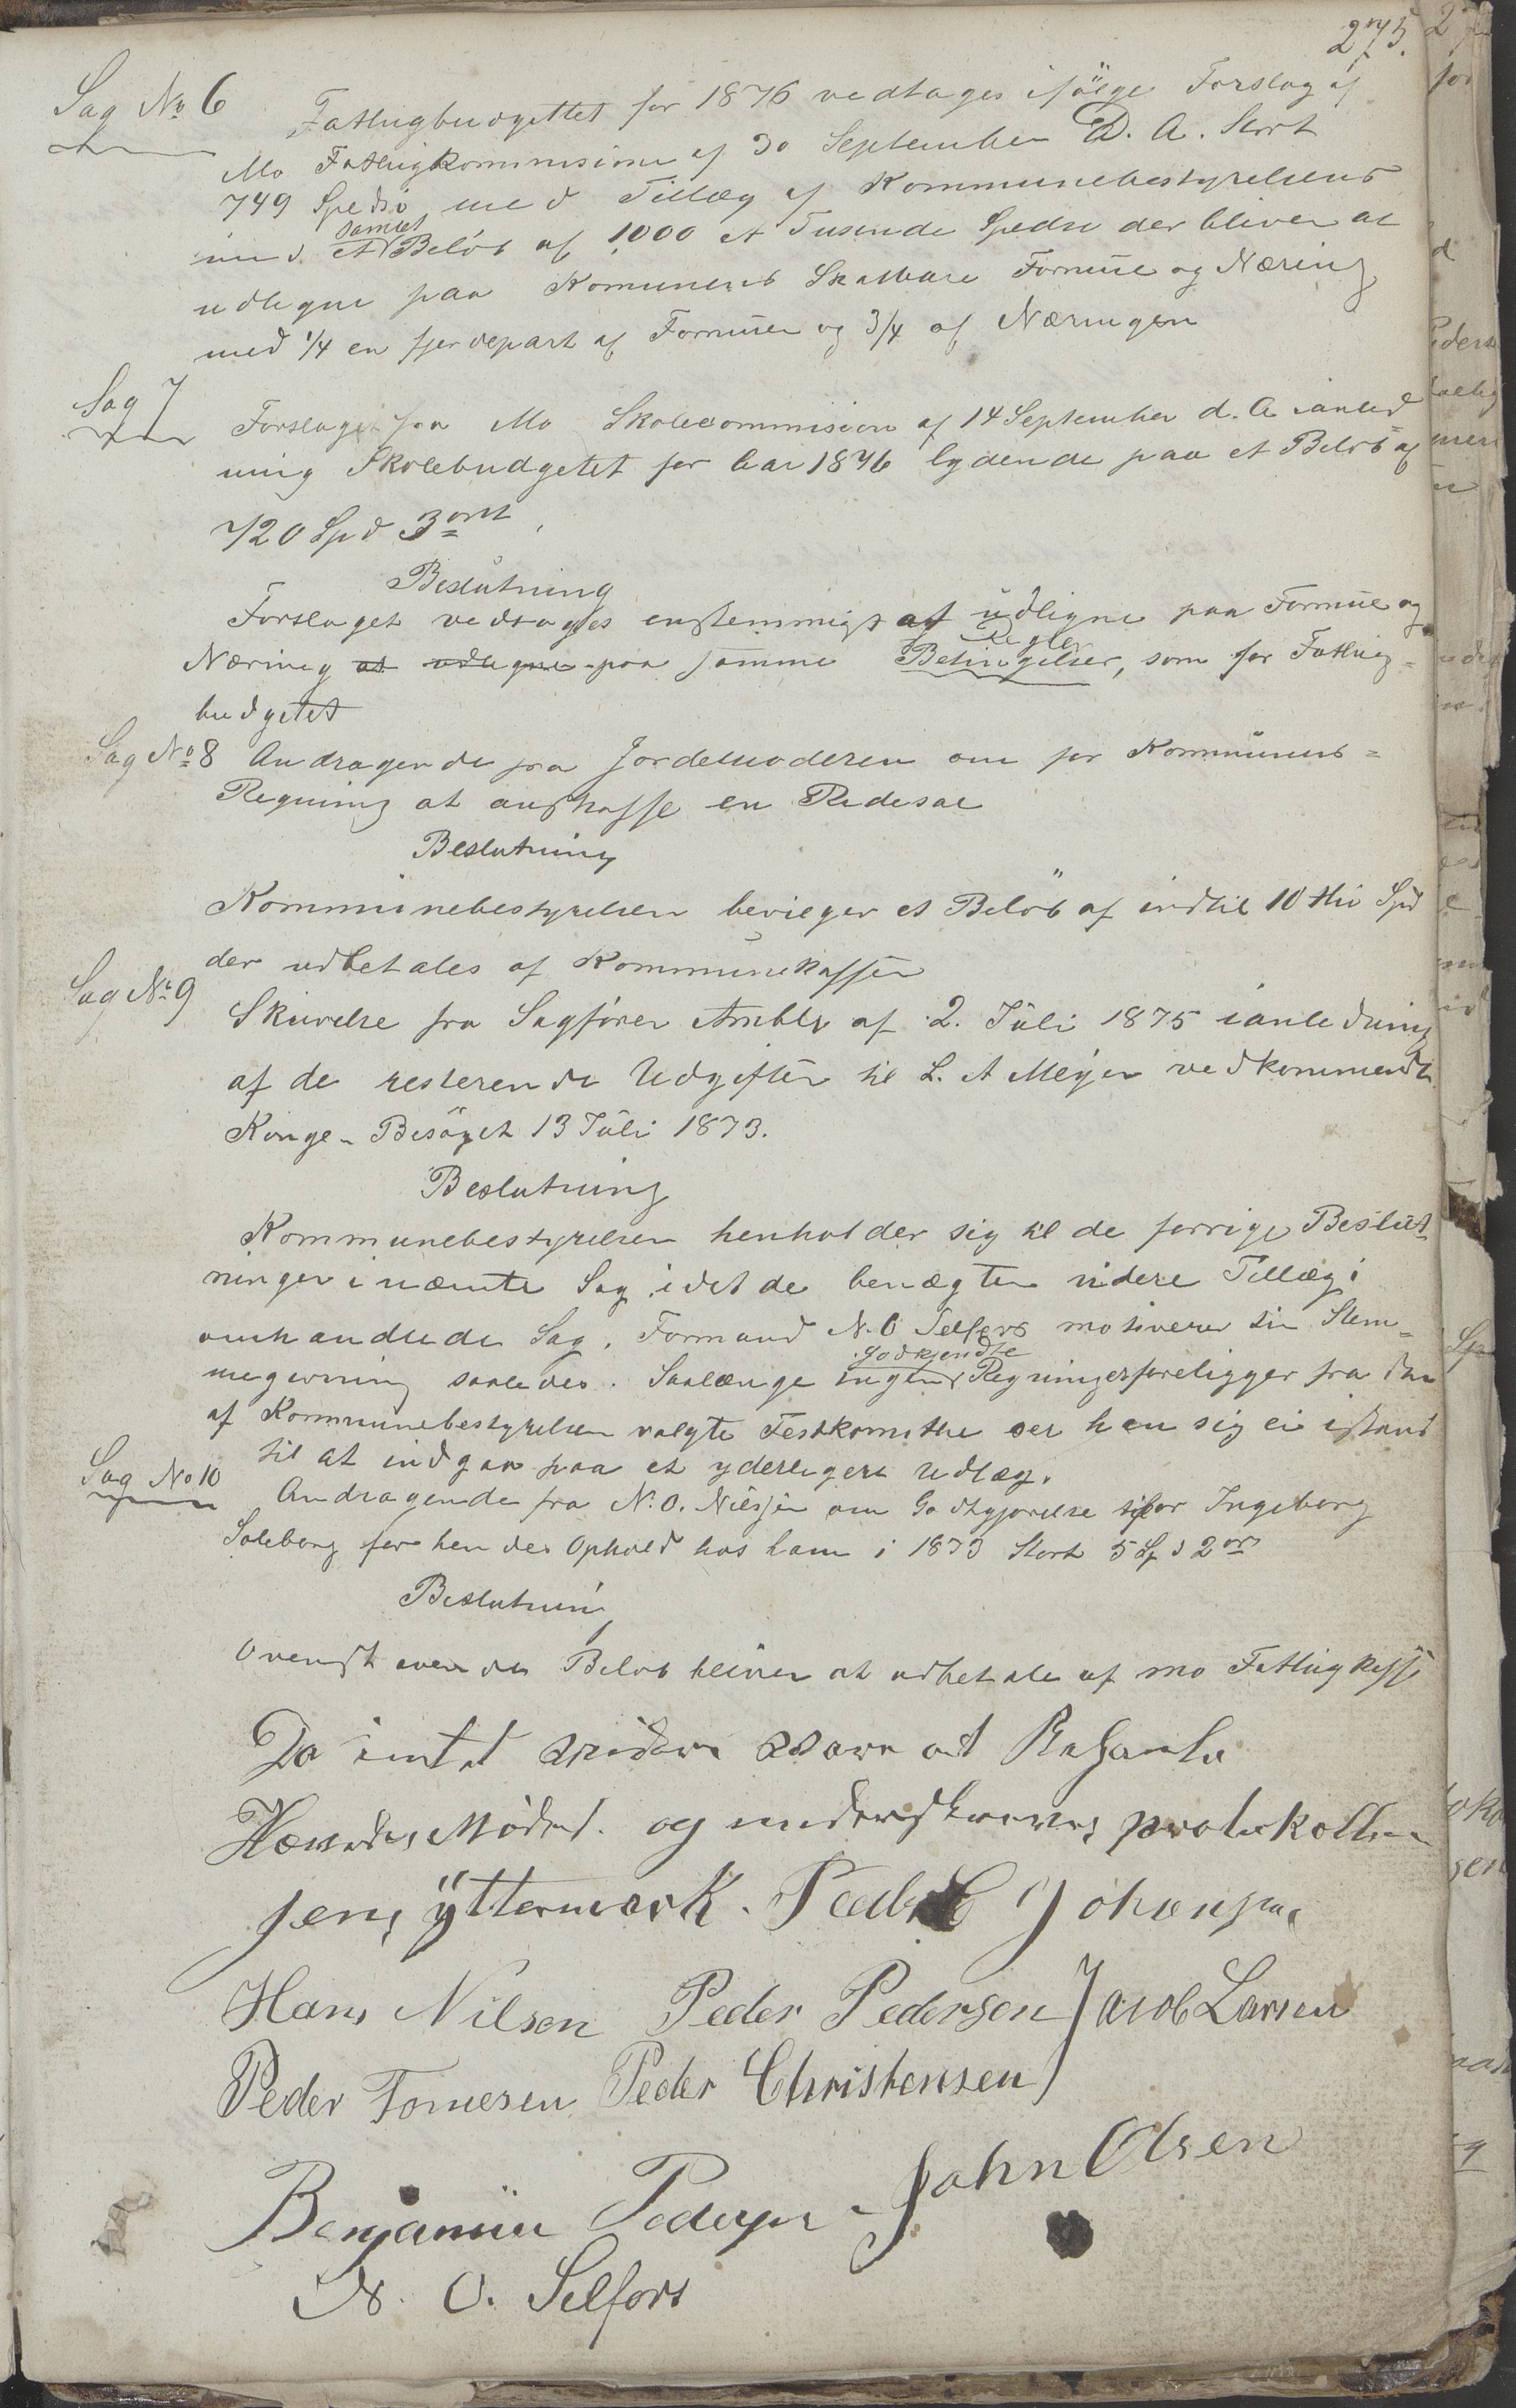 275.
Sag No 6 Fattigbudgettet for 1876 vedtages ifølge Forslag af
Mo Fattigkommision af 30 September D. A. Stort
749 Spedsi med Tillæg af Kommunebestyrelsens
ind. et samlet Beløb af 1000 et Tusende Spedsi der bliver at
udligne paa Komunens Skatbare Formue og Næring
med 1/4 en fjerdepart af Formuen og 3/4 af Næringen
Sag 7 Forslaget fra Mo Skolecommision af 14 September d. A ianled
ning Skolebudgetet for Aar 1876 lydende paa et Beløb af
720 Spd 3 ort
Beslutning
Forslaget vedtages enstemmigt at udligne paa Formue og
Næring at udligne paa samme Betingelser Regler, som for Fattig-
budgetet
Sag No 8 Andragende fra Jordemoderen om for Kommunens-
Regning at anskaffe en Redesal
Beslutning
Kommunebestyrelsen bevilger et Beløb af indtil 10 thi Spd
der udbetales af Kommunekassen
Sag No 9 Skrivelse fra Sagfører Amble af 2. Juli 1875 ianledning
af de resterende Udgifter til L. A Meyer vedkommende
Konge-Besøget 13 Juli 1873.
Beslutning
Kommunebestyrelsen henholder sig til de forrige Beslut-
ninger i nævnte Sag, idet de benægter videre Tillæg i
omhandlede Sag. Formand N. O Selfors motiverer sin Stem-
megivning saaledes. Saalænge ingen godkjendte Regninger foreligger fra den
af Kommunebestyrelsen valgte Festkomithe ser han sig ei istand
til at indgaa paa et yderligere Udlæg.
Sag No 10 Andragende fra N. O. Nilssen om Godtgjørelse for Ingeborg
Soleborg for hendes Ophold hos ham i 1873 Stort 5 Spd 2 ort
Beslutning
Ovenstaaende Beløb bliver at udbetale af Mo Fattigkasse
Da intet videre var at Behandle
Hævedes Mødet. og underskreves protokollen
Jens Yttermork. Peder C Johansen
Hans Nilsen Peder Pedersen Jacob Larsen
Peder Tomesen Peder Christensen
Benjamin Pedersen John Olsen
N. O. Selfors